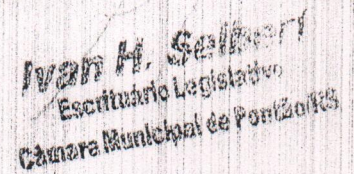 Ivan H. Seibert
Escriturário Legislativo
Câmara Municipal de Pontão/RS